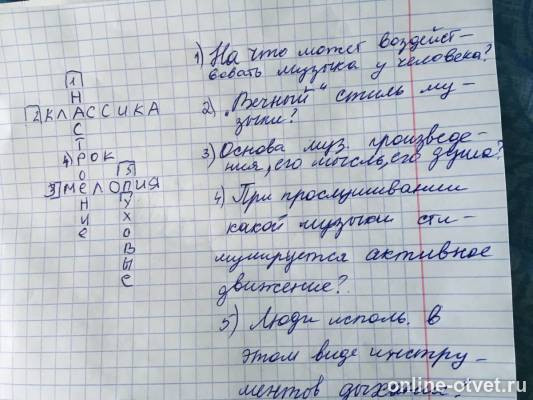 1
Н
2 КЛАССИКА
С
Т
4 РОК
О 5
3 МЕЛОДИЯ
Н У
И Х
Е О
В
Ы
Е
1) На что может воздейст-
вовать музыка у человека?
2) „Вечный“ стиль му-
зыки?
3) Основа муз. произведе-
ния, его мысль, его душа?
4) При прослушивании
какой музыки сти-
мулируется активное
движение?
5) Люди исполь. в
этом виде инстру-
ментов дыхание.
online-otvet.ru